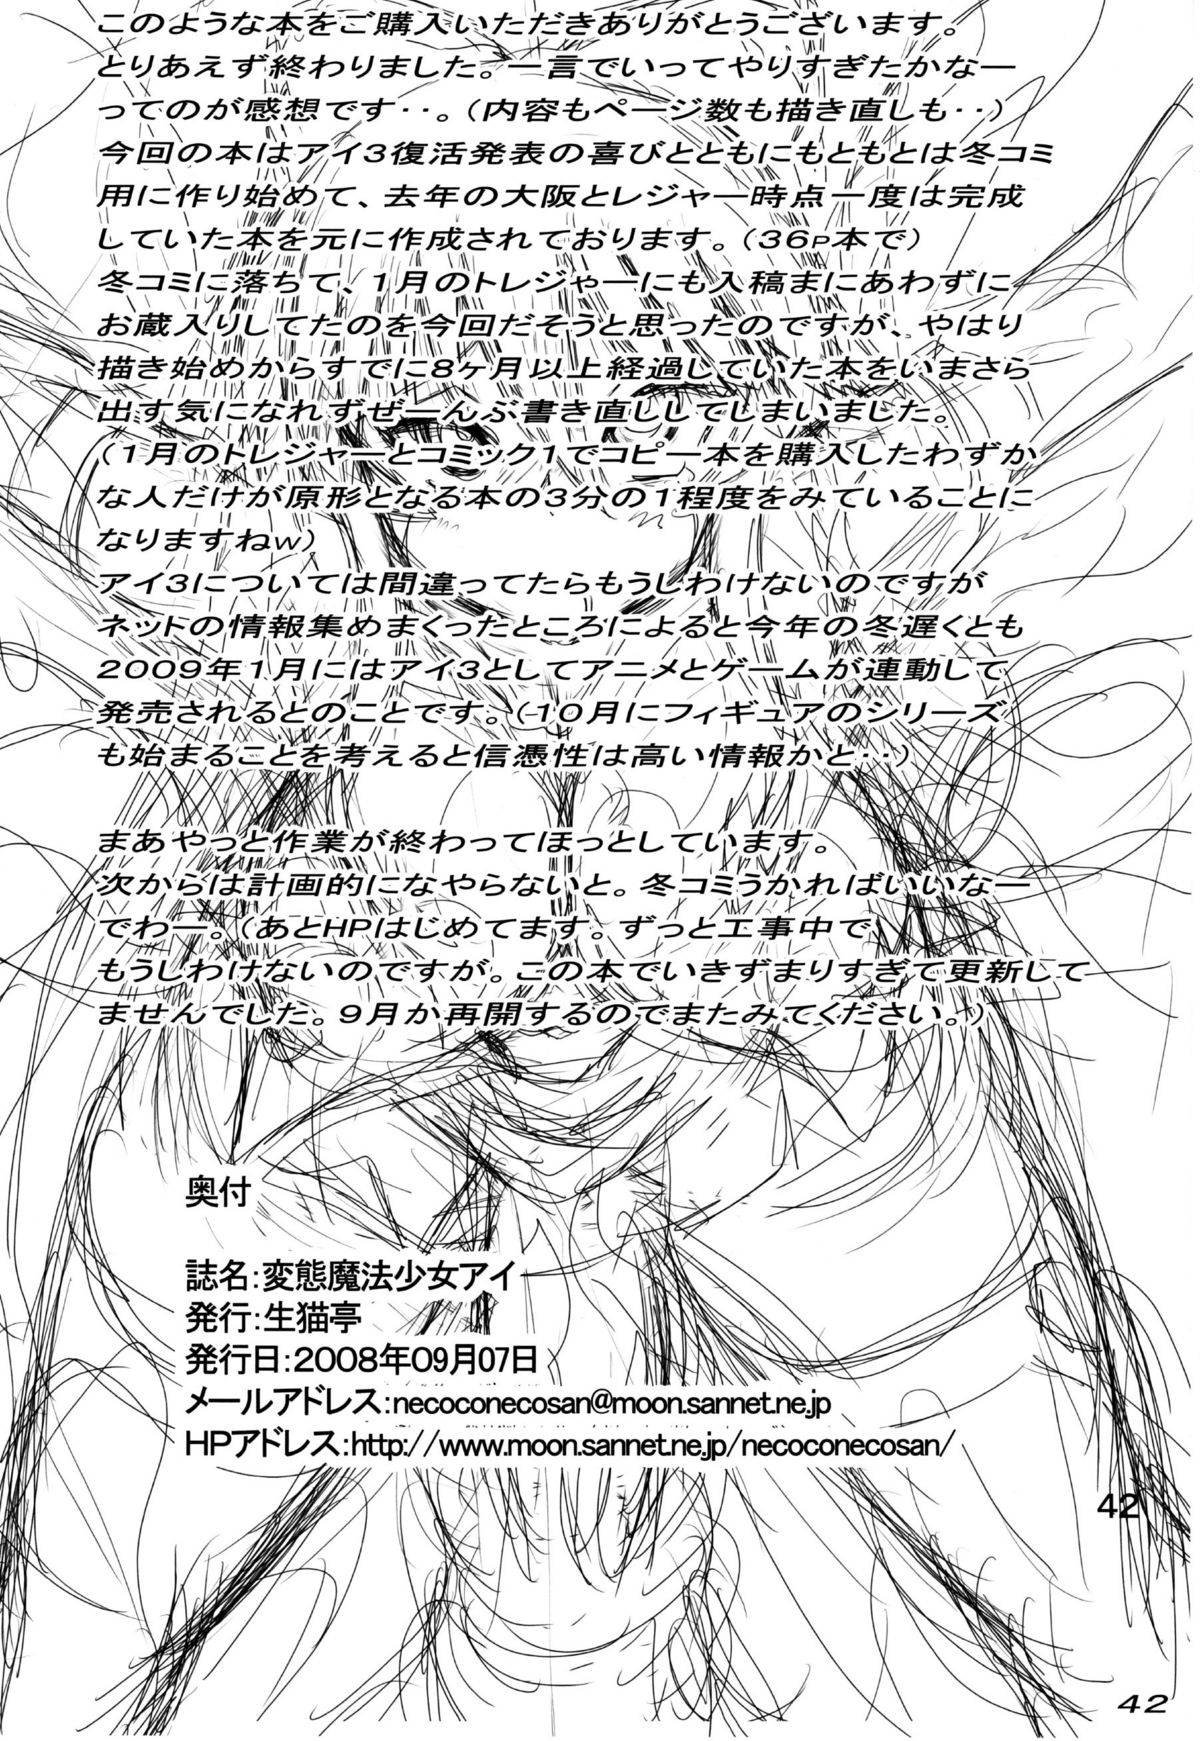 このような本をご購入いただきありがとうございます。
とりあえず終わりました。一言でいってやりすぎたかなー
ってのが感想です‥。（内容もページ数も描き直しも‥）
今回の本はアイ3復活発表の喜びとともにもともとは冬コミ
用に作り始めて、去年の大阪とレジャー時点一度は完成
していた本を元に作成されております。（36P本で）
冬コミに落ちて、1月のトレジャーにも入稿まにあわずに
お蔵入りしてたのを今回だそうと思ったのですが、やはり
描き始めからすでに8ヶ月以上経過していた本をいまさら
出す気になれずぜーんぶ書き直ししてしまいました。
（1月のトレジャーとコミック1でコピー本を購入したわずか
な人だけが原形となる本の3分の1程度をみていることに
なりますねw）
アイ3については間違ってたらもうしわけないのですが
ネットの情報集めまくったところによると今年の冬遅くとも
2009年1月にはアイ3としてアニメとゲームが連動して
発売されるとのことです。（10月にフィギュアのシリーズ
も始まることを考えると信憑性は高い情報かと‥）
まあやっと作業が終わってほっとしています。
次からは計画的になやらないと。冬コミうかればいいなー
でわー。（あとHPはじめてます。ずっと工事中で、
もうしわけないのですが。この本でいきずまりすぎて更新して
ませんでした。9月か再開するのでまたみてください。）
奥付
誌名：変態魔法少女アイ
発行：生猫亭
発行日：2008年09月07日
メールアドレス：necoconecosan@moon.sannet.ne.jp
HPアドレス：http://www.moon.sannet.ne.jp/necoconecosan/
42
42